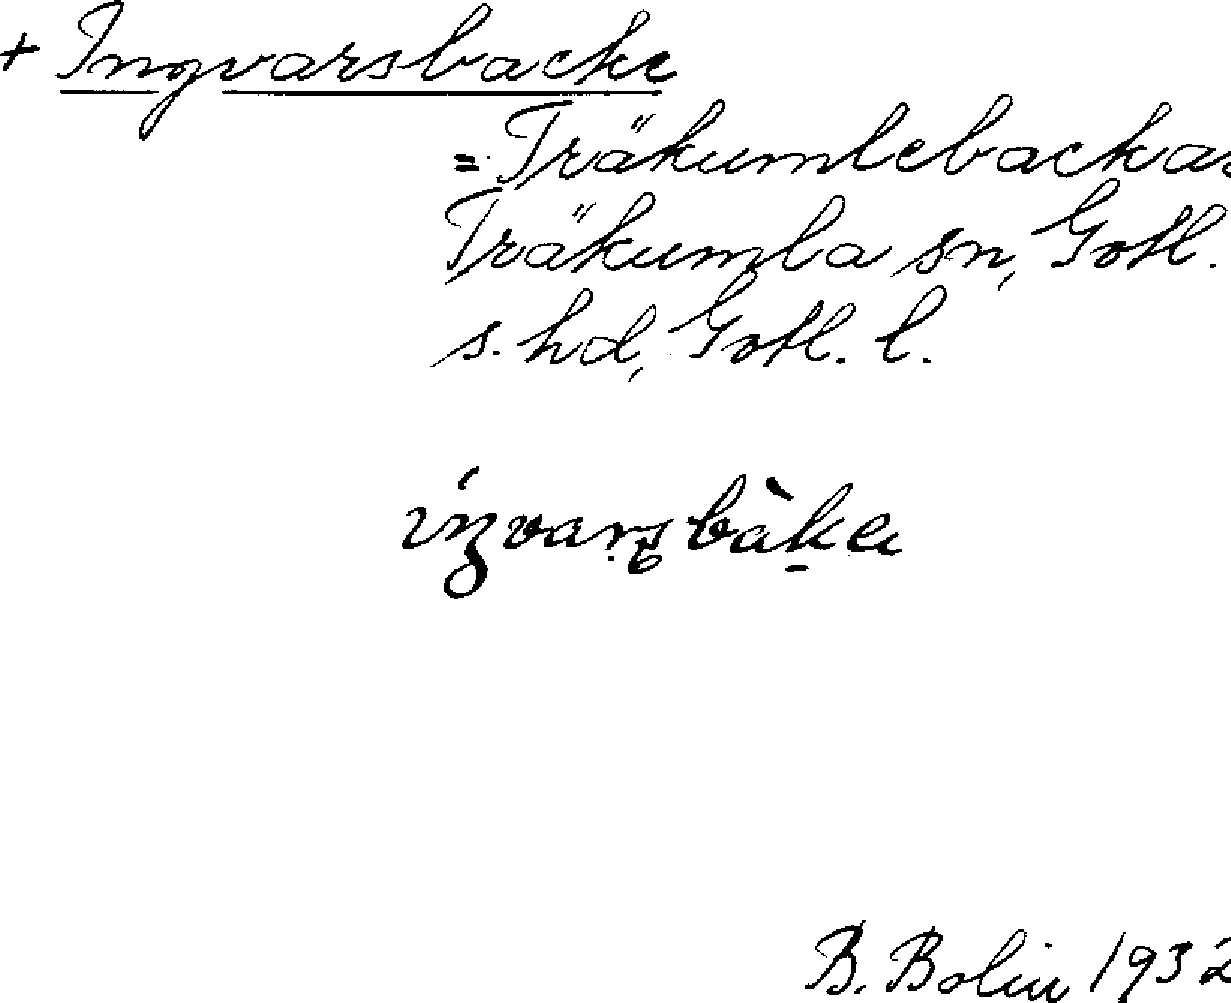 + Ingvarsbacke
= Träkumlebackar
Träkumla sn, Gotl.
s. hd, Gotl. l.
B. Bolin 1932